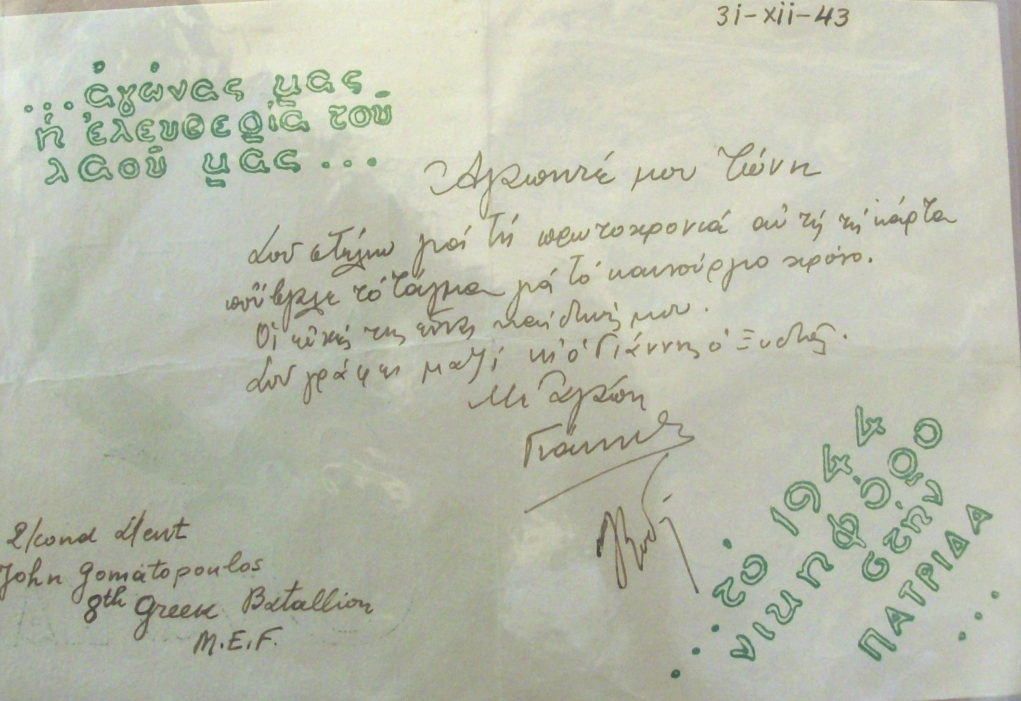 31-xii-43
...ἀγώνας μας
ἡ ἐλευθερία τοῦ
λαοῦ μας...
Ἀγαπητέ μου Τζώνη
Σοῦ στέλνω γιά τή πρωτοχρονιά αὐτή τή κάρτα
πού ἔβγαλε τό Τάγμα γιά τό καινούργιο χρόνο.
Οἱ εὐχές της εἶναι καί δικές μου.
Σοῦ γράφει μαζί κι ὁ Γιάννης ὁ
Με ἀγάπη
Γιάννης
2/cond Lieut
John Gomatopoulos
8th Greek Batallion
M.E.F.
...τό 1944
νικηφόρο
στήν
ΠΑΤΡΙΔΑ...